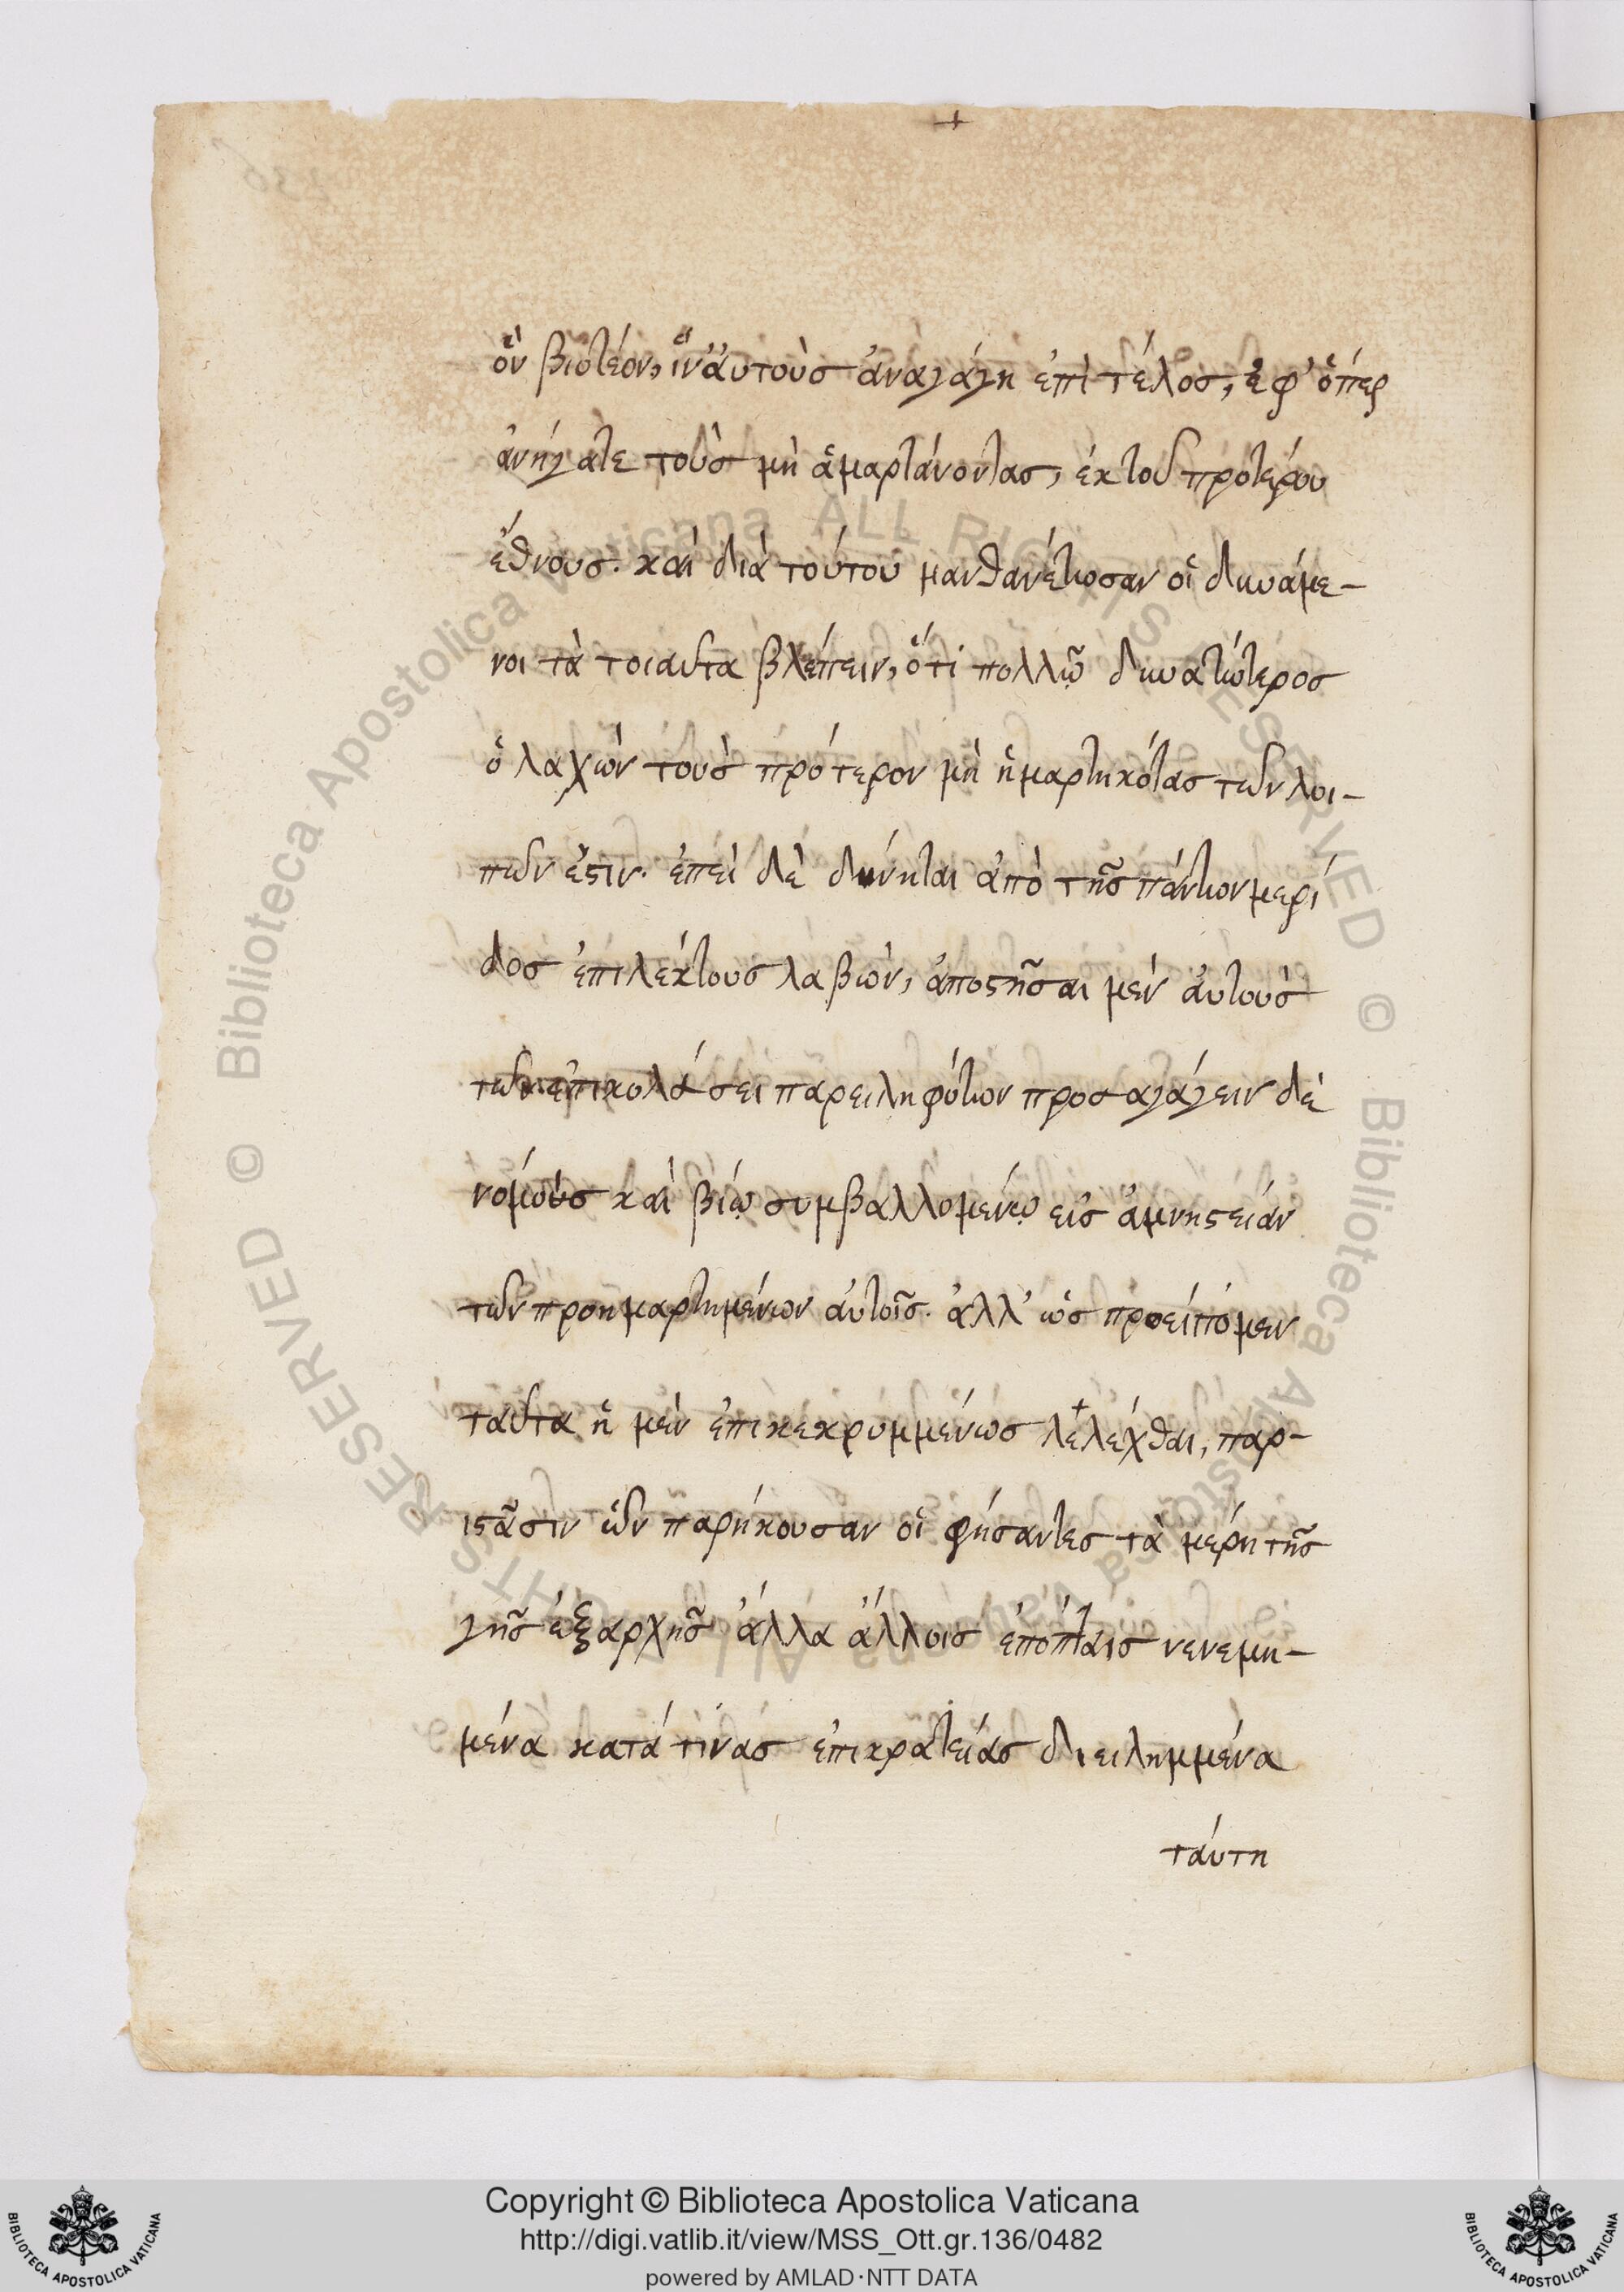 ὃν βιοτέον, ἵν' ἀυτοὺς ἀναγάγη ἐπὶ τέλος, ἐφ' ὅπερ
ἀνήγατε τοὺς μὴ ἁμαρτάνοντας, ἐκ τοῦ προτέρου
ἔθνους. καὶ διὰ τούτου μανθανέτωσαν οἱ δυνάμε-
νοι τὰ τοιαῦτα βλέπειν, ὅτι πολλῶ δυνατώτερος
ὁ λαχὼν τοὺς πρότερον μὴ ἡμαρτηκότας τῶν λοι-
πῶν ἐστιν. ἐπεὶ δὲ δύνηται ἀπὸ τῆς πάντων μερί
δος ἐπιλέκτους λαβὼν, ἀποστῆσαι μὲν ἀυτοὺς
τῶν ἐπικολάσει παρειληφότων προσαγάγειν δὲ
νομόυς καὶ βίῳ συμβαλλομένῳ εἰς ἀμνηστείαν
τῶν προημαρτημένων ἀυτοῖς. ἀλλ' ὡς προείπομεν
ταῦτα ἡ μὲν ἐπικεκρυμμένως λελέχθαι, παρ-
ιστᾶσιν ὧν παρήκουσαν οἱ φήσαντες τὰ μέρη τῆς
γῆς ἐξαρχῆς ἄλλα ἄλλοις ἐπόπταις νενεμη-
μένα κατά τινας ἐπικρατείας διειλημμένα
τάυτη
Copyright © Biblioteca Apostolica Vaticana
http://digi.vatlib.it/view/MSS_Ott.gr.136/0482
powered by AMLAD·NTT DATA